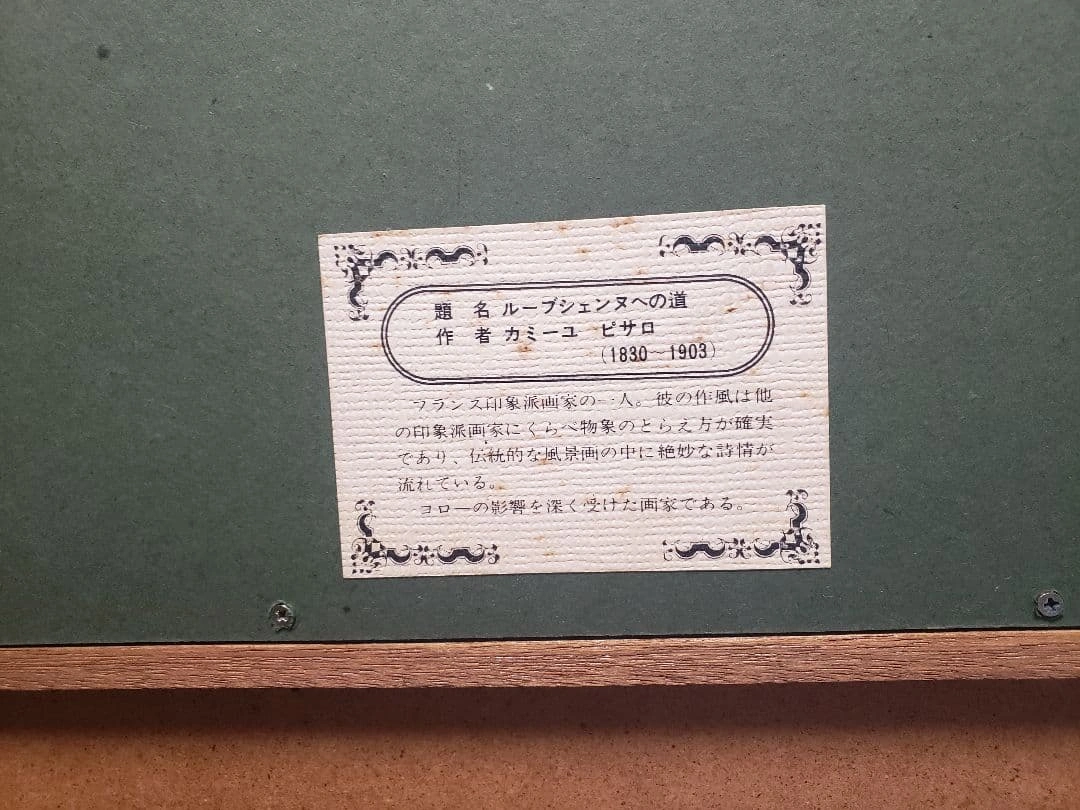 題 名 ルーブシェンヌへの道
作 者 カミーユ ピサロ
(1830~1903)
フランス印象派画家の一人。彼の作風は他
の印象派画家にくらべ物象のとらえ方が確実
であり、伝統的な風景画の中に絶妙な詩情が
流れている。
コローの影響を深く受けた画家である。